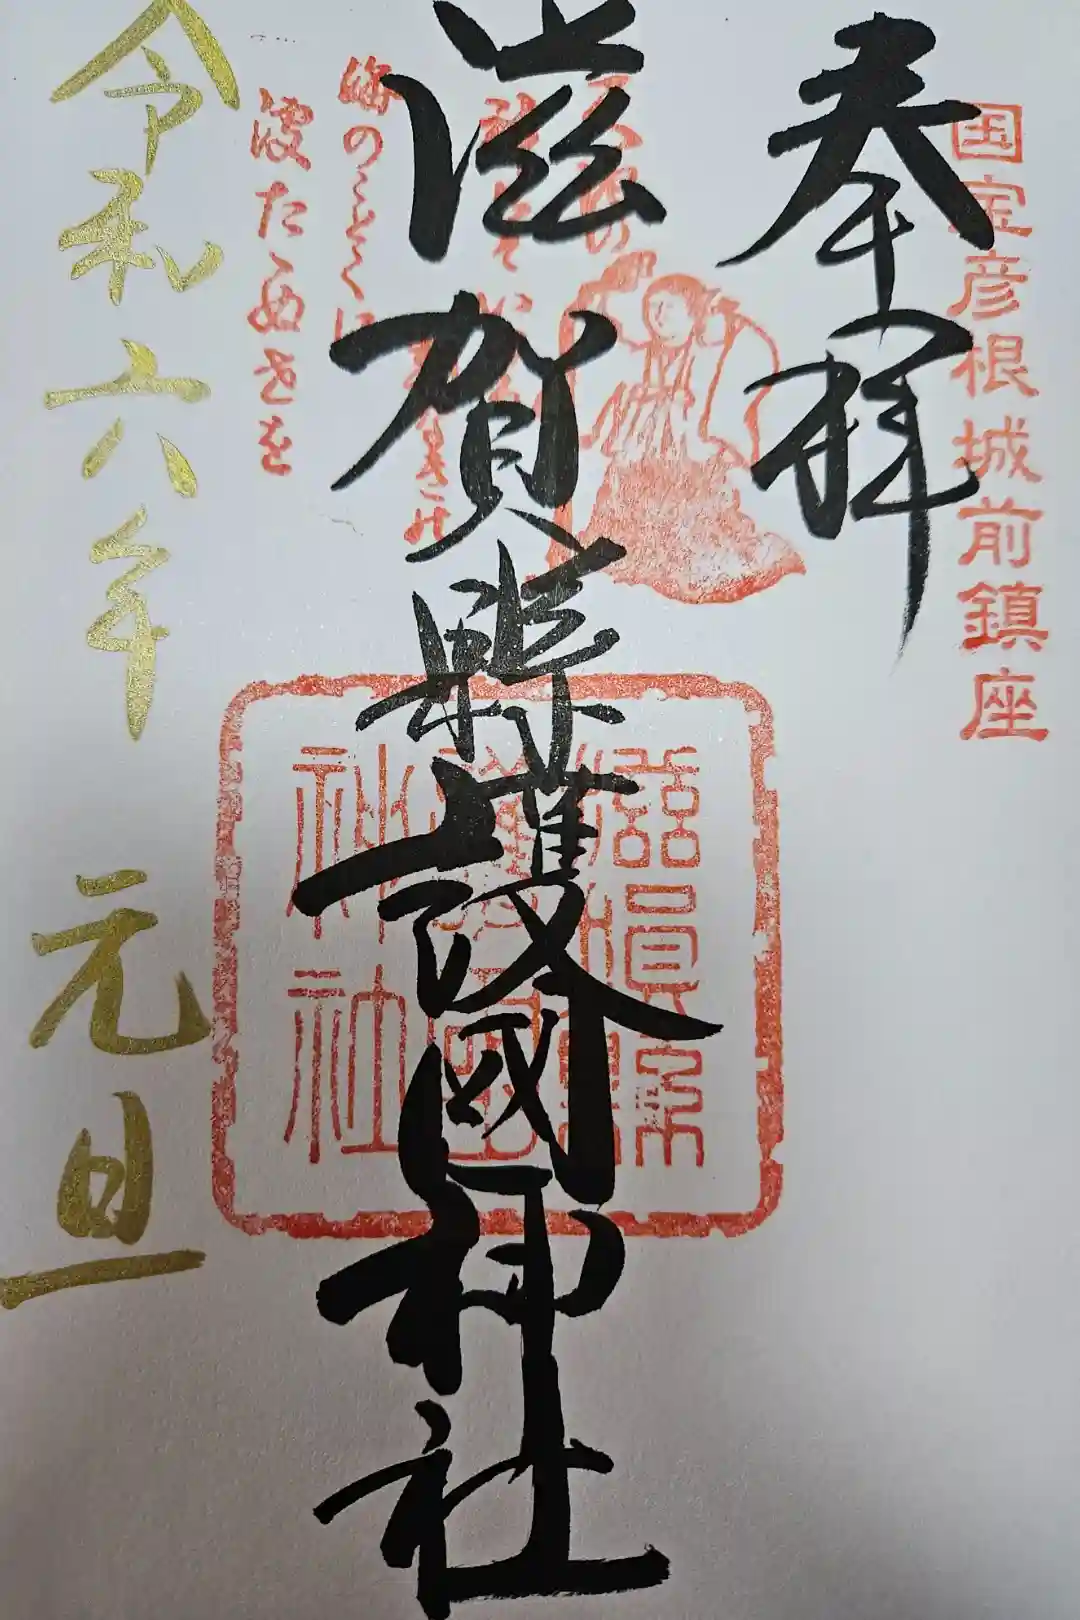 国宝彦根城前鎮座
奉拜
滋賀縣護國神社
海のことくに
波たゝぬ世を
滋賀縣
護國
神社
令和六年 元旦